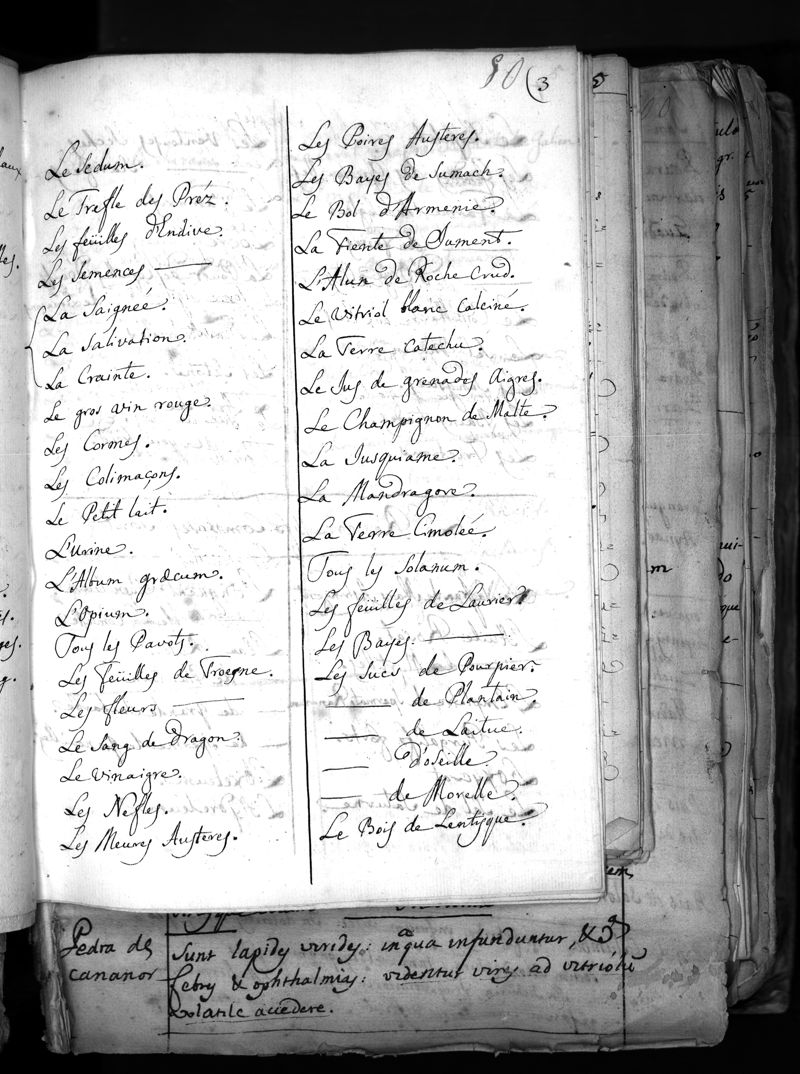 80 (3
Le Sedum.
Le Trefle des Préz.
Les feüilles d'Endive.
Les Semences ——
La Saigneé.
La Salivation.
La Crainte.
Le gros vin rouge.
Les Cormes.
Les Colimaçons.
Le Petit lait.
L'urine.
L'Album græcum.
L'Opium.
Tous les Pavots.
Les feüilles de Troesne.
Les fleurs ——
Le Sang de Dragon.
Le Vinaigre.
Les Nefles.
Les Meures Austeres.
Les Poires Austeres.
Les Bayes de Sumach.
Le Bol d'Armenie.
La Fiente de Jument.
L'Alun de Roche Crud.
Le Vitriol blanc Calciné.
La Terre Catechu.
Le Jus de grenades Aigres.
Le Champignon de Malte.
La Jusquiame.
La Mandragore.
La Terre Cimoleé.
Tous les Solanum.
Les feüilles de Laurier
Les Bayes ——
Les Sucs de Pourpier.
—— de Plantain.
—— de Laitue.
—— d'oseille
—— de Morelle.
Le Bois de Lentisque.
Pedra de
cananor
Sunt lapides virides: in aqua infunduntur, &
febres & ophthalmias: videntur vires ad vitriolū
volatile accedere.